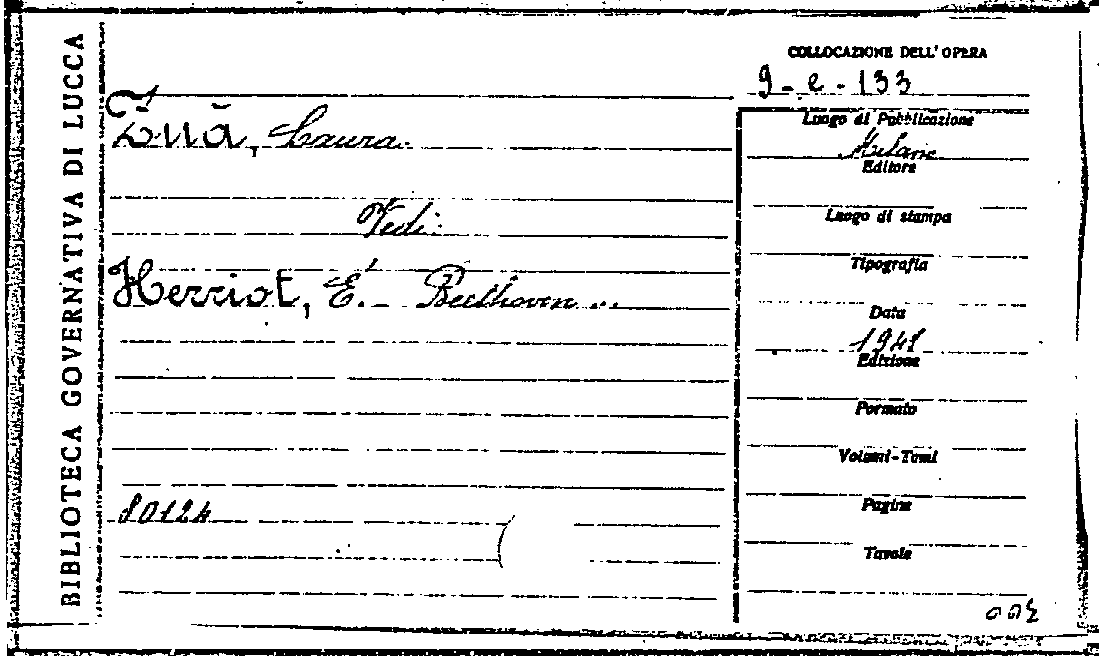 BIBLIOTECA GOVERNATIVA DI LUCCA
COLLOCAZIONE DELL'OPERA
9-e-133
Luogo di Pubblicazione
Milano
Editore
Luogo di stampa
Tipografia
Data
1948
Edizione
Formato
Volumi-Tomi
Pagine
Tavole
Laura
Vedi:
Herriot, É. - Beethoven ...
80124